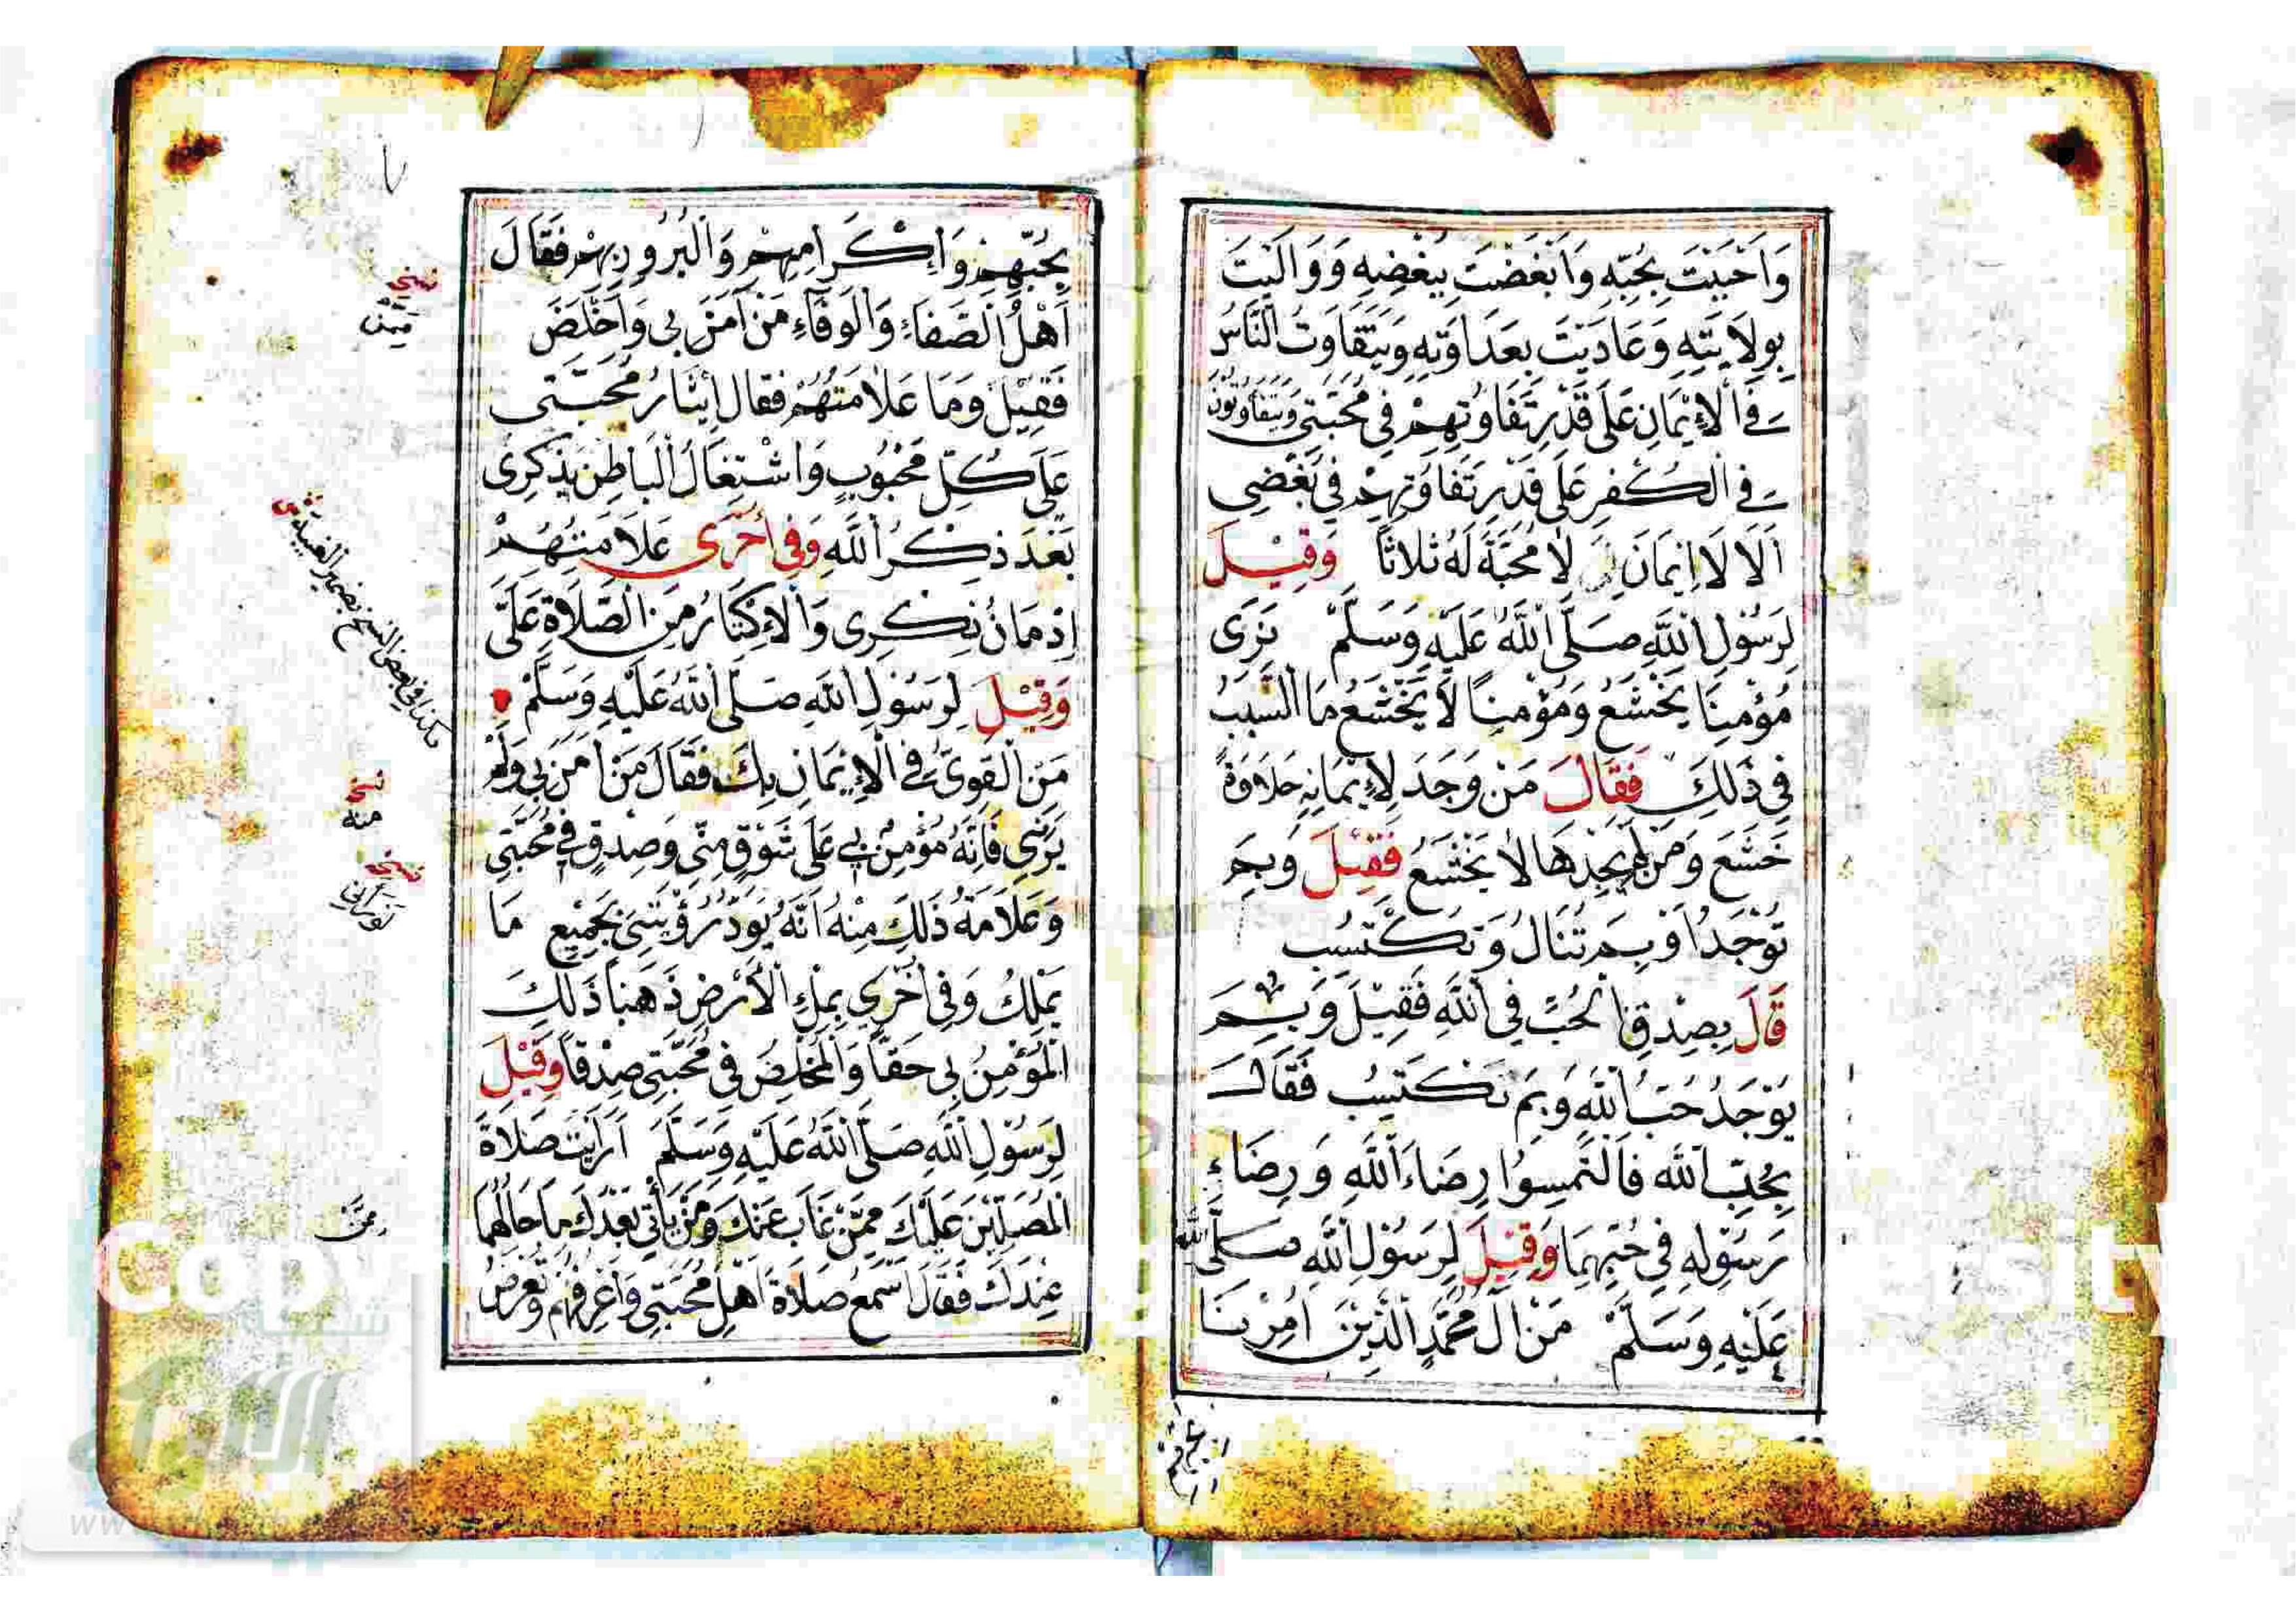 وَاَحْبَبْتَ بِحُبِّهِ وَاَبْغَضْتَ بِبُغْضِهِ وَوَالَيْتَ
بِوِلَايَتِهِ وَعَادَيْتَ بِعَدَاوَتِهِ وَيَتَفَاوَتُ النَّاسُ
فِي الْاِيْمَانِ عَلَى قَدْرِ تَفَاوُتِهِمْ فِي مَحَبَّتِي وَيَتَفَاوَتُوْنَ
فِي الْكُفْرِ عَلَى قَدْرِ تَفَاوُتِهِمْ فِي بُغْضِي
اَلَا لَا اِيمَانَ لِمَنْ لَا مَحَبَّةَ لَهُ ثَلَاثًا وَقِيْلَ
لِرَسُوْلِ اللَّهِ صَلَّى اللَّهُ عَلَيْهِ وَسَلَّمْ نَرَى
مُؤْمِنًا يَخْشَعُ وَمُؤْمِنًا لَا يَخْشَعُ مَا السَّبَبُ
فِي ذَلِكَ فَقَالَ مَنْ وَجَدَ لِاِيْمَانِهِ حَلَاوَةً
خَشَعَ وَمَنْ لَمْ يَجِدْهَا لَا يَخْشَعُ فَقِيْلَ وَبِمَ
تُوْجَدُ اَوْ بِمَ تُنَالُ وَتَكْتَسِبُ
قَالَ بِصِدْقِ الْحُبِّ فِي اللَّهِ فَقِيْلَ وَبِمَ
يُوْجَدُ حُبُّ اللَّهِ وَبِمَ تَكْتَسِبُ فَقَالَ
بِحُبِّ اللَّه فَالْتَمِسُوا رِضَاءَ اللَّهِ وَرِضَاءَ
رَسُوْلِهِ فِي حُبِّهِمَا وَقِيْلَ لِرَسُوْلِ اللَّهِ صَلَّى اللَّه
عَلَيْهِ وَسَلَّمْ مَنْ آلُ مُحَمَّدٍ الَّذِيْنَ اُمِرْنَا
بِحُبِّهِمْ وَاِكْرَامِهِمْ وَالْبُرُورِ بِهِمْ فَقَالَ
اَهْلُ الصَّفَاءِ وَالْوَفَاءِ مَنْ آمَنَ بِي وَاَخْلَصَ
فَقِيْلَ وَمَا عَلَامَتُهُمْ فَقَالَ اِيْثَارُ مَحَبَّتِي
عَلَى كُلِّ مَحْبُوْبٍ وَاشْتِغَالُ الْبَاطِنِ بِذِكْرِى
بَعْدَ ذِكْرِ اللَّهِ وَفِي اُخْرَى عَلَامَتُهُمْ
اِدْمَانُ ذِكْرِى وَالْاِكْثَارُ مِنَ الصَّلَاةِ عَلَىَّ
وَقِيْلَ لِرَسُوْلِ اللَّهِ صَلَّى اللَّهُ عَلَيْهِ وَسَلَّمْ
مَنِ الْقَوِىُّ فِي الْاِيْمَانِ بِكَ فَقَالَ مَنْ اٰمَنَ بِي وَلَمْ
يَرَنِي فَاِنَّهُ مُؤْمِنٌ بِي عَلَى شَوْقٍ مِنِّي وَصِدْقٍ فِي مَحَبَّتِي
وَعَلَامَةُ ذَلِكَ مِنْهُ اَنَّهُ يَوَدُّ رُؤْيَتِي بِجَمِيْعِ مَا
يَمْلِكُ وَفِي اُخْرَى بِمِلْءِ الْاَرْضِ ذَهَبًا ذَلِكَ
الْمُؤْمِنُ بِي حَقًّا وَالْمُخْلِصُ فِي مَحَبَّتِي صِدْقًا وَقِيْلَ
لِرَسُوْلِ اللَّهِ صَلَّى اللَّهُ عَلَيْهِ وَسَلَّمَ اَرَاَيْتَ صَلَاةَ
الْمُصَلِّيْنَ عَلَيْكَ مِمَّنْ غَابَ عَنْكَ وَمَنْ يَأْتِي بَعْدَكَ مَا حَالُهُمَا
عِنْدَكَ فَقَالَ اَسْمَعُ صَلَاةَ اَهْلِ مَحَبَّتِي وَاَعْرِفُهُمْ وَتُعْرَضُ
نسخه
هكذا في بعض النسخ بضمير الغيبة
نسخه
منه
نسخه
لو رآني
ممن
Cop
sity